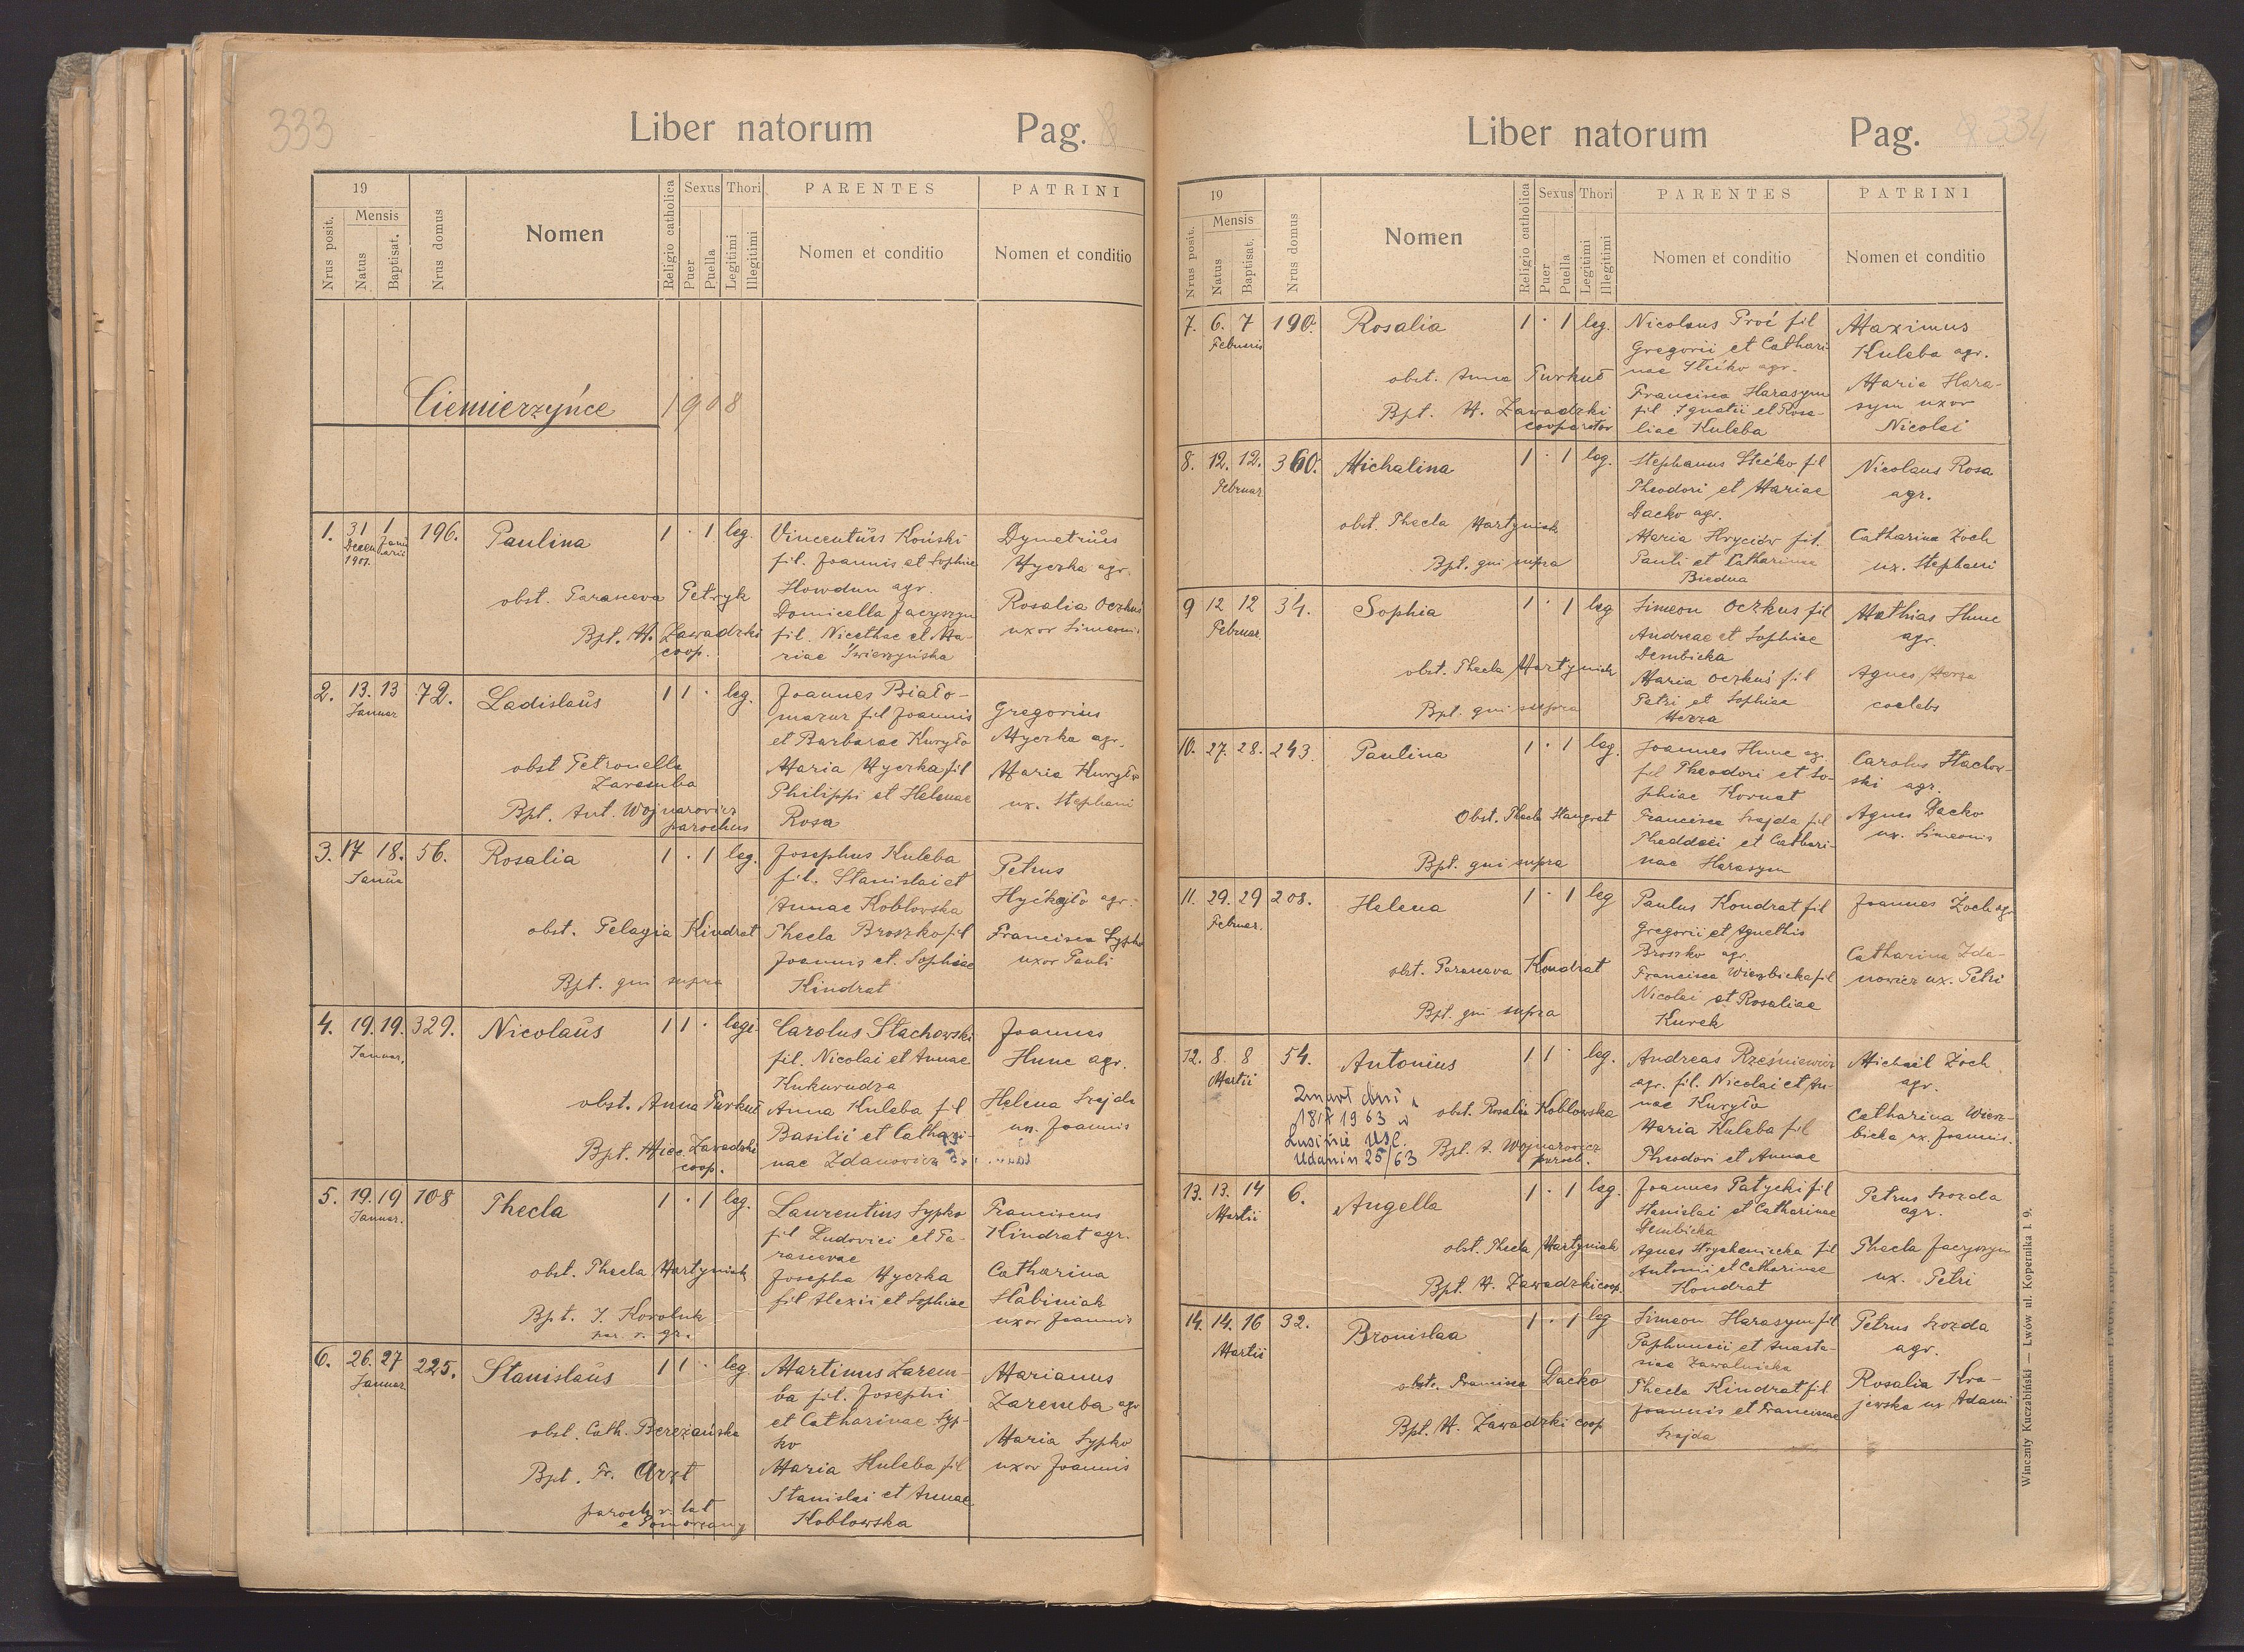 333
Liber natorum Pag. 8
19 Mensis
Nrus posit. Natus Baptisat. Nrus domus Nomen Religio catholica Sexus Puer Puella Thori Legitimi Illegitimi
PARENTES Nomen et conditio
PATRINI Nomen et conditio
Ciemierzyńce 1908
1. 31 Decem 1907. 1 Januarii 196. Paulina 1 · 1 leg.
obst. Parasceva Petryk
Bpt. M. Zawadzki
coop.
Vincentius Koński
fil. Joannis et Sophiae
Howdun agr.
Domicella Jaczyszyn
fil. Nicethae et Ma-
riae Zwierzyńska
Dymetrius
Myczka agr.
Rosalia Oczkuś
uxor Simeonis
2. 13. 13 Januar 72. Ladislaus 1 1 · leg.
obst Petronella
Zaremba
Bpt. Ant. Wojnarowicz
parochus
Joannes Biało-
mazur fil Joannis
et Barbarae Kuryło
Maria Myczka fil
Philippi et Helenae
Rosa
Gregorius
Myczka agr.
Maria Kuryło
ux. Stephani
3. 17 18. Janua 56. Rosalia 1 · 1 leg.
obst. Pelagia Kindrat
Bpt. qui supra
Josephus Kuleba
fil. Stanislai et
Annae Koblowska
Thecla Broszko fil
Joannis et. Sophiae
Kindrat
Petrus
agr.
Francisca Sypko
uxor Pauli
4. 19. 19. Januar. 329. Nicolaus 1 1 · legi
obst. Anna Turkuś
Bpt. Miec. Zawadzki
coop.
Carolus Stachowski
fil. Nicolai et Annae
Kukurudza
Anna Kuleba fil
Basilii et Cathari-
nae Zdanowicz
Joannes
Hunc agr.
Helena Szajda
ux. Joannis
5. 19. 19 Januar. 108 Thecla 1 · 1 leg.
obst. Thecla Martyniak
Bpt. J. Koroluk
par. r. gr.
Laurentius Sypko
fil Ludovici et Pa-
rascevae
Josepha Myczka
fil Alexii et Sophiae
Franciscus
Kindrat agr.
Catharina
Słabiniak
uxor Joannis
6. 26. 27 Januar 225. Stanislaus 1 1 · leg.
obst. Cath. Bereżańska
Bpt. Fr. Arzt
paroch r. lat
e Pomorzany
Martinus Zarem-
ba fil. Josephi
et Catharinae Syp-
ko
Maria Huleba fil
Stanislai et Annae
Koblowska
Marianus
Zaremba agr
Maria Sypko
uxor Joannis
334
Liber natorum Pag.
19 Mensis
Nrus posit. Natus Baptisat. Nrus domus Nomen Religio catholica Sexus Puer Puella Thori Legitimi Illegitimi
PARENTES Nomen et conditio
PATRINI Nomen et conditio
7. 6. 7 Februaris 190. Rosalia 1 · 1 leg.
obst. Anna Turkuś
Bpt. M. Zawadzki
cooperator
Nicolaus Proć fil
Gregorii et Cathari-
nae Stećko agr.
Francisca Harasym
fil Ignatii et Rosa-
liae Kuleba
Maximus
Kuleba agr.
Maria Hara-
sym uxor
Nicolai
8. 12. 12. Februar 360. Michalina 1 · 1 leg.
obst. Thecla Martyniak
Bpt. qui supra
Stephanus Stećko fil
Theodori et Mariae
Dacko agr.
Maria Hryciów fil.
Pauli et Catharinae
Biedna
Nicolaus Rosa
agr.
Catharina Zoch
ux. Stephani
9 12 12 Februar. 34. Sophia 1 · 1 leg
obst. Thecla Martyniak
Bpt. qui supra
Simeon Oczkus fil
Andreae et Sophiae
Dembicka
Maria Oczkuś fil
Petri et Sophiae
Merza
Mathias Hunc
agr.
Agnes Merza
coelebs
10. 27. 28. 243. Paulina 1 · 1 leg.
Obst. Thecla Stangret
Bpt. qui supra
Joannes Hunc agr.
fil Theodori et So-
phiae Kornat
Francisca Szajda fil
Thaddaei et Cathari-
nae Harasym
Carolus Stachow-
ski agr.
Agnes Dacko
ux. Simeonis
11. 29. 29 Februar. 208. Helena 1 · 1 leg
obst. Parasceva Kondrat
Bpt. qui supra
Paulus Kondrat fil
Gregorii et Agnethis
Broszko agr.
Francisca Wierzbicka fil
Nicolai et Rosaliae
Kurek
Joannes Żoch agr
Catharina Zda-
nowicz ux. Petri
12. 8. 8 Martii 54. Antonius 1 1 · leg.
Zmarł dni a
18 IV 1963 w
Lusinie USC.
Udanin 25/63
obst. Rosalia Koblowska
Bpt. A. Wojnarowicz
paroch.
Andreas Rześniewicz
agr. fil. Nicolai et An-
nae Kuryło
Maria Kuleba fil
Theodori et Annae
Michael Żoch
agr.
Catharina Wierz-
bicka ux. Joannis.
13. 13. 14 Martii 6. Angella 1 · 1 leg.
obst. Thecla Martyniak
Bpt. M. Zawadzki coop.
Joannes Patycki fil
Stanislai et Catharinae
Dembicka
Agnes fil
Antonii et Catharinae
Kondrat
Petrus Szozda
agr.
Thecla Jaczyszyn
ux. Petri
14. 14. 16 Martii 32. Bronislaa 1 · 1 leg
obst. Francisca Dacko
Bpt. M. Zawadzki coop
Simeon Harasym fil
Paphnucii et Anasta-
siae Zawalnicka
Thecla Kindrat fil
Joannis et Franciscae
Szajda
Petrus Szozda
agr.
Rosalia Kra-
jewska ux Adami
Winczenty Kuczabiński — Lwów ul. Kopernika l. 9.